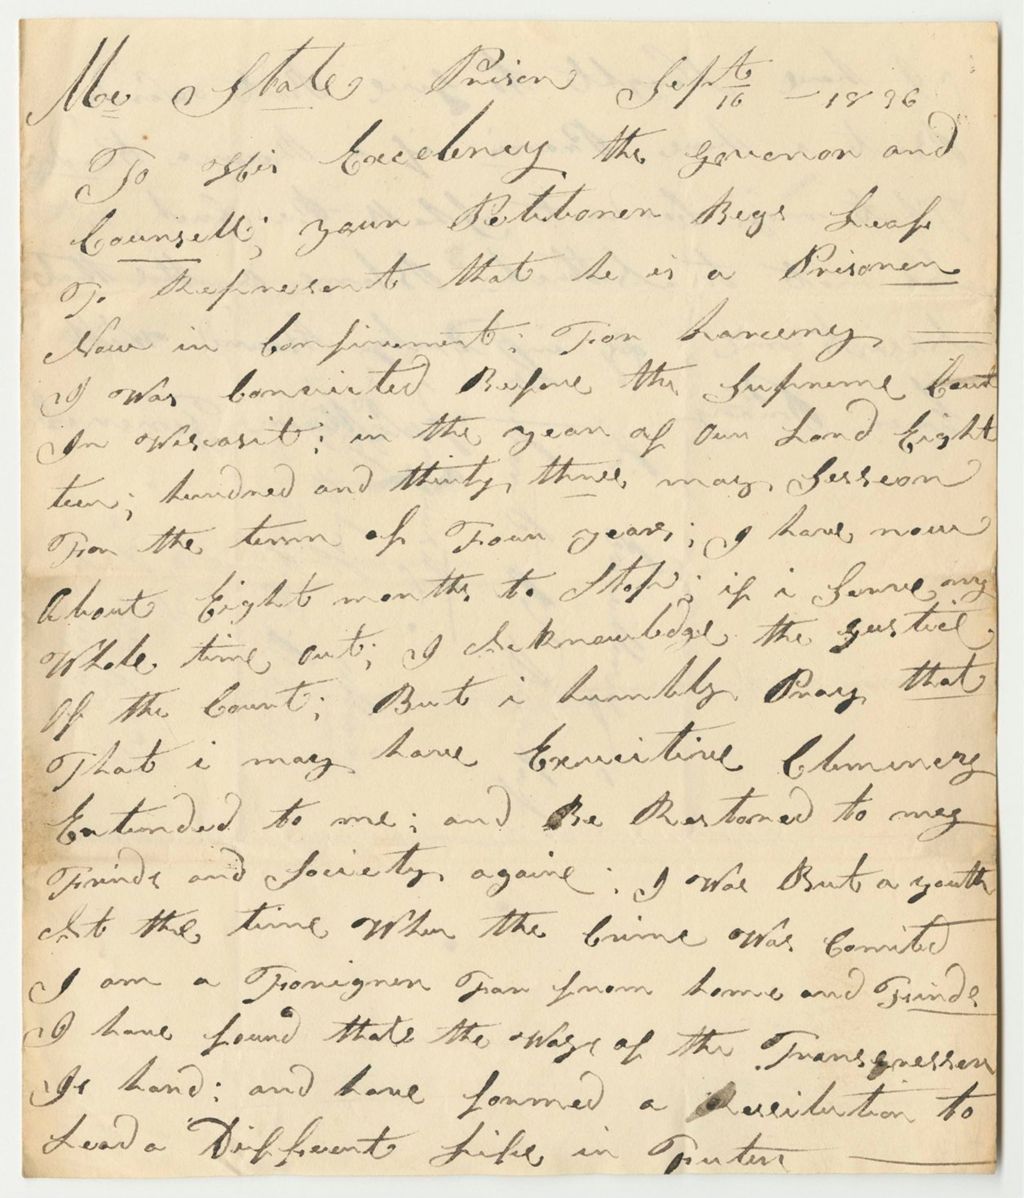 Me State Prison Sept 16 – 1836
To His Excelency the Govenor and
Counsell; your Petitioner Begs Leaf
To Represent that he is a Prisoner
Now in Confinement; For Larceney
I Was Convicted Before the Supreme Court
In Wiscasit; in the year of Our Lord Eight
teen; hundred and thirty three may Session
For the term of Four years; I have now
About Eight months to Stop; if i Serve my
Whole time out; I Acknowledge the Justice
Of the Court; But i humbly Pray that
That i may have Execitive Clemincy
Extended to me; and Be Restored to my
Frinds and Society againe; I Was But a youth
At the time When the Crime Was Comited
I am a Foreigner Far from home and Frinds
I have found that the Ways of the Transgressor
Is hard; and have formed a Resilution to
Lead a Different Life in Futer